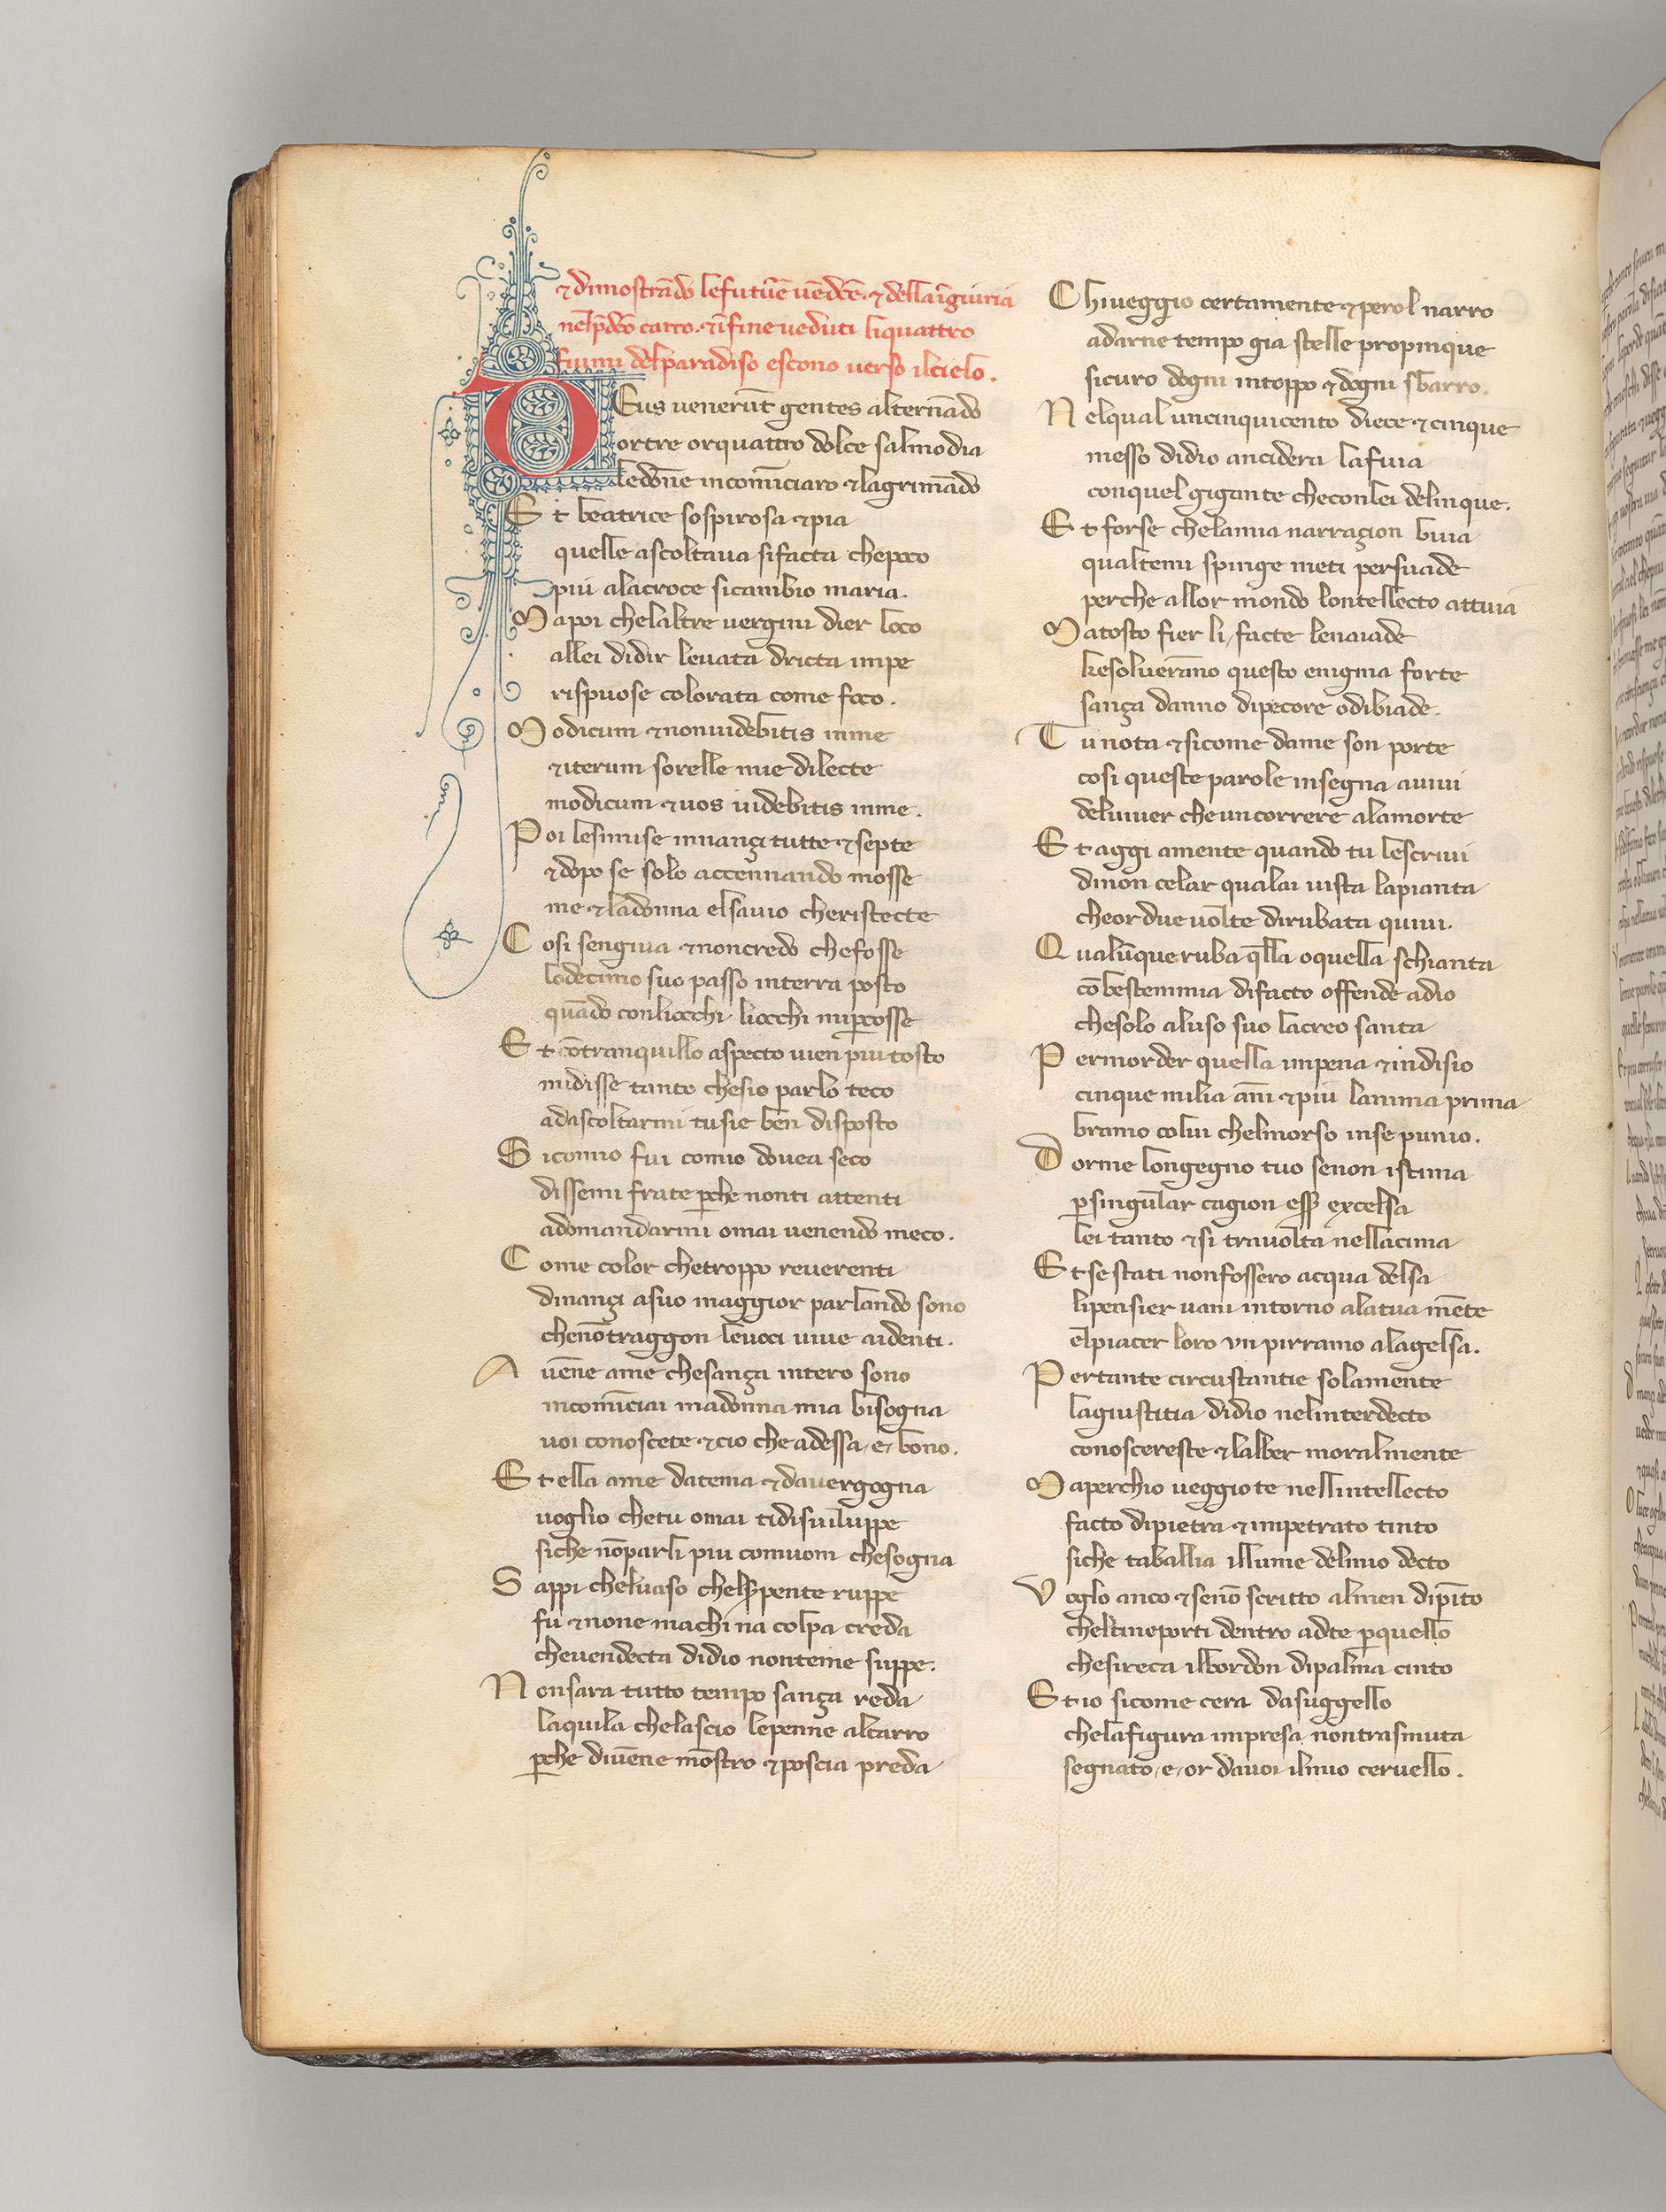 ⁊ dimostrādo lefutur̄e uēdēē ⁊ dellaīgiuria
nelp̄dc̄o carro. ⁊ īfine ueduti liquattro
fiumi delparadiso escono uerso ilcielo.
DEus uenerūt gentes alternādo
ortre orquattro dolce salmodia
ledōne incomīciaro ⁊ lagrimādo
Et beatrice sospirosa ⁊ pia
quelle ascoltaua sifacta chepoco
piu alacroce sicambio maria.
Mapoi chelaltre uergini dier loco
allei didir leuata dricta impe
rispuose colorata come foco.
Modicum ⁊ nonuidebitis inme
⁊ iterum sorelle mie dilecte
modicum ⁊ uos uidebitis inme.
Poi lesimise innançi tutte ⁊ septe
⁊ dopo se solo accennando mosse
me ⁊ ladonna elsauio cheristecte
Cosi sengiua ⁊ noncredo chefosse
lodecimo suo passo interra posto
quādo conliocchi liocchi miꝑcosse
Et cōtranquillo aspecto uien piu tosto
midisse tanto chesio parlo teco
adascoltarmi tusie ben disposto
Sicomio fui comio douea seco
dissemi frate ꝑche nonti attenti
adomandarmi omai uenendo meco.
Come color chetroppo reuerenti
dinançi asuo maggior parlando sono
chenōtraggon leuoci uiue aidenti.
Auēne ame chesança intero sono
incomīciai madonna mia bisogna
uoi conoscete ⁊ cio che adessa, e, bono.
Et ella ame datema ⁊ dauergogna
uoglio chetu omai tidisuiluppe
siche nōparli piu comuom chesogna
Sappi cheluaso chelserpente ruppe
fu ⁊ none machi na colpa creda
cheuendecta didio nonteme suppe.
Nonsara tutto tempo sança reda
laquila chelascio lepenne alcarro
ꝑche diuēne mōstro ⁊ poscia preda
Chiueggio certamente ⁊ perol narro
adarne tempo gia stelle propinque
sicuro dogni intoppo ⁊ dogni sbarro.
Nelqual uncinquicento diece ⁊ cinque
messo didio anciderà lafuia
conquel gigante checonlei delinque.
Et forse chelamia narraçion buia
qualtemi spinge meti persuade
perche allor mondo lontellecto attuia
Matosto fier li facte lenaiade
kesoluerāno questo enigma forte
sança danno dipecore odibiade.
Tu nota ⁊ sicome dame son porte
cosi queste parole insegna auiui
deluiuer che uncorrere alamorte
Et aggi amente quando tu lescriui
dinon celar qualai uista lapianta
cheordue uolte dirubata quiui.
Qualūque ruba q̄lla oquella schianta
cōbestemmia difacto offende adio
chesolo aluso suo lacreo santa
Permorder quella impena ⁊ indisio
cinque milia anni ⁊ piu lanima prima
bramo colui chelmorso inse punio.
Dorme longegno tuo senon istima
ꝑsingular cagion esser excelsa
lei tanto ⁊ si trauolta nellacima
Et se stati nonfossero acqua delsa
lipensier uani intorno alatua mēte
elpiacer loro un pirramo alagelsa.
Pertante circustantie solamente
lagiustitia didio nelinterdecto
conoscereste ⁊ lalber moralmente
Maperchio ueggiote nellintellecto
facto dipietra ⁊ impetrato tinto
siche taballia illume delmio decto
Voglo anco ⁊ senō scritto almen dipīto
cheltineporti dentro adte ꝑquello
chesireca ilbordon dipalma cinto
Et io sicome cera dasuggello
chelafigura impresa nontrasmuta
segnato, e, or dauoi ilmio ceruello.